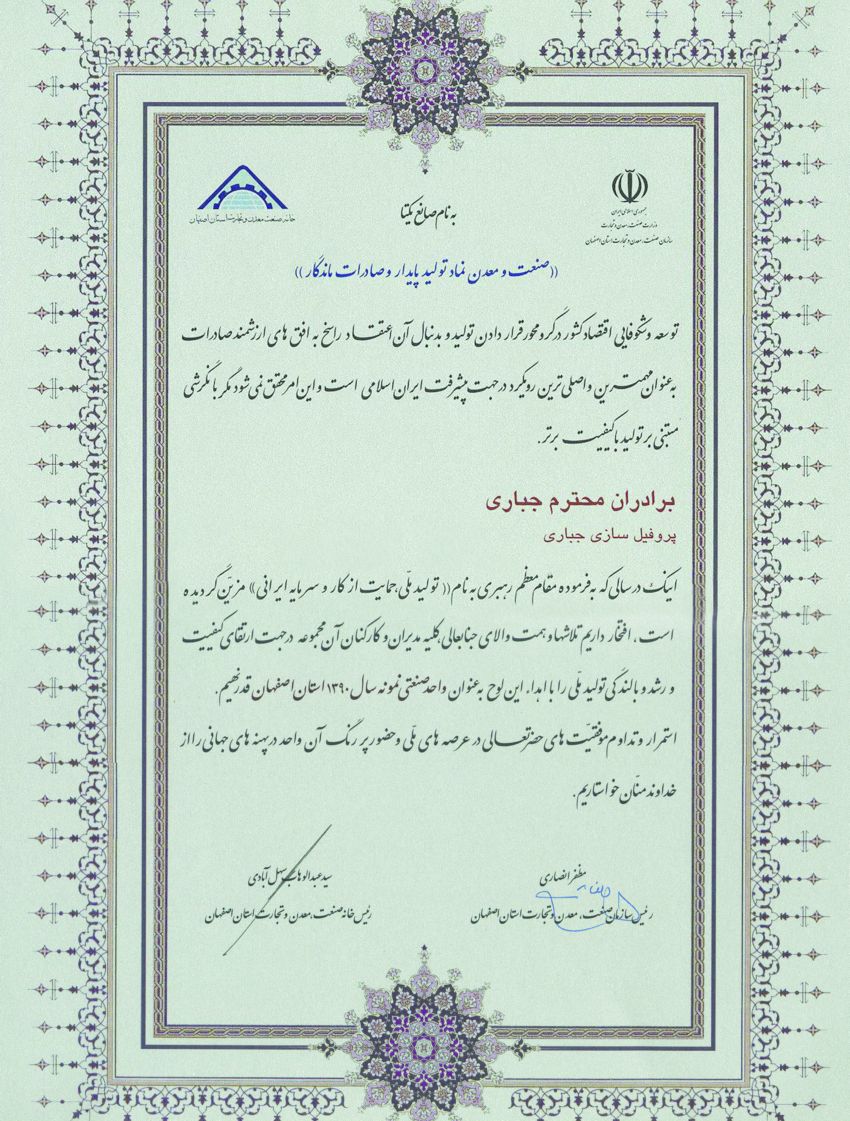 جمهوری اسلامی ایران
وزارت صنعت، معدن و تجارت
سازمان صنعت، معدن و تجارت استان اصفهان
خانه صنعت معدن و تجارت استان اصفهان
به نام صانع یکتا
((صنعت و معدن نماد تولید پایدار و صادرات ماندگار))
توسعه و شکوفایی اقتصاد کشور در گرو محور قرار دادن تولید و بدنبال آن اعتقاد راسخ به افق های ارزشمند صادرات
به عنوان مهمترین و اصلی ترین رویکرد در جهت پیشرفت ایران اسلامی است و این امر محقق نمی شود مگر با نگرشی
مبتنی بر تولید با کیفیت برتر.
برادران محترم جباری
پروفیل سازی جباری
اینک در سالی که به فرموده مقام معظم رهبری به نام ((تولید ملّی حمایت از کار و سرمایه ایرانی)) مزیّن گردیده
است، افتخار داریم تلاشها و همت والای جنابعالی، کلیه مدیران و کارکنان آن مجموعه در جهت ارتقای کیفیت
و رشد و بالندگی تولید ملّی را با اهداء این لوح به عنوان واحد صنعتی نمونه سال ۱۳۹۰ استان اصفهان قدر نهیم.
استمرار و تداوم موفقیّت های حضرتعالی در عرصه های ملّی و حضور پر رنگ آن واحد در پهنه های جهانی را از
خداوند منّان خواستاریم.
مظفر انصاری
رئیس سازمان صنعت، معدن و تجارت استان اصفهان
سید عبدالوهاب سهل آبادی
رئیس خانه صنعت، معدن و تجارت استان اصفهان